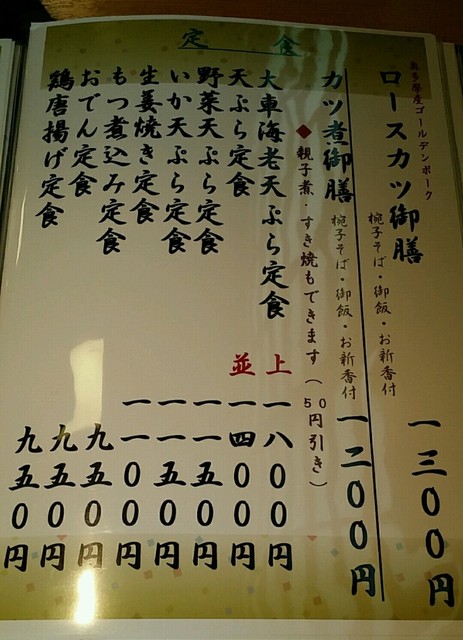 定食
奥多摩産ゴールデンポーク
ロースカツ御膳
椀子そば・御飯・お新香付
一三００円
カツ煮御膳
椀子そば・御飯・お新香付
一二００円
◆親子煮・すき焼もできます（５０円引き）
大車海老天ぷら定食 上 一八００円
天ぷら定食 並 一四００円
野菜天ぷら定食 一一五０円
いか天ぷら定食 一一五０円
生姜焼き定食 一一００円
もつ煮込み定食 九五０円
おでん定食 九五０円
鶏唐揚げ定食 九五０円